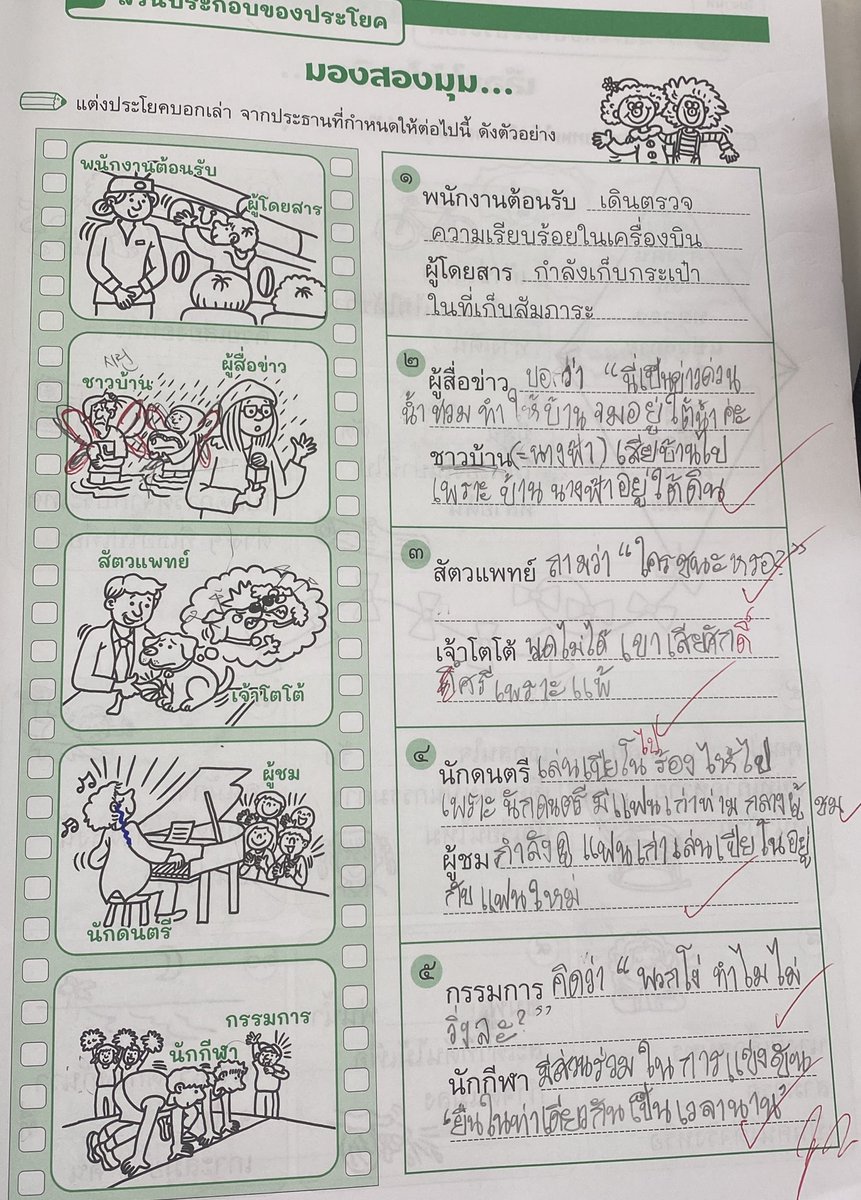 ส่วนประกอบของประโยค
มองสองมุม...
แต่งประโยคบอกเล่า จากประธานที่กำหนดให้ต่อไปนี้ ดังตัวอย่าง
พนักงานต้อนรับ
ผู้โดยสาร
๑
พนักงานต้อนรับ เดินตรวจ
ความเรียบร้อยในเครื่องบิน
ผู้โดยสาร กำลังเก็บกระเป๋า
ในที่เก็บสัมภาระ
ชาวบ้าน
ผู้สื่อข่าว
๒
ผู้สื่อข่าว บอกว่า “นี่เป็นข่าวด่วน
น้ำท่วม ทำให้บ้านจมอยู่ใต้น้ำค่ะ
ชาวบ้าน (=นางฟ้า) เสียบ้านไป
เพราะบ้านนางฟ้าอยู่ใต้ดิน
สัตวแพทย์
เจ้าโตโต้
๓
สัตวแพทย์ ถามว่า “ใครชนะหรอ?”
เจ้าโตโต้ พูดไม่ได้ เขาเสียศักดิ์
ศรีเพราะแพ้
ผู้ชม
นักดนตรี
๔
นักดนตรี เล่นเปียโนไปร้องไห้ไป
เพราะนักดนตรีมีแฟนเก่าท่ามกลางผู้ชม
ผู้ชม กำลังดูแฟนเก่าเล่นเปียโนอยู่
กับแฟนใหม่
กรรมการ
นักกีฬา
๕
กรรมการ คิดว่า “พวกโง่ ทำไมไม่
วิ่งละ?”
นักกีฬา มีส่วนร่วมในการแข่งขัน
“ยืนในท่าเดียวกันเป็นเวลานาน”